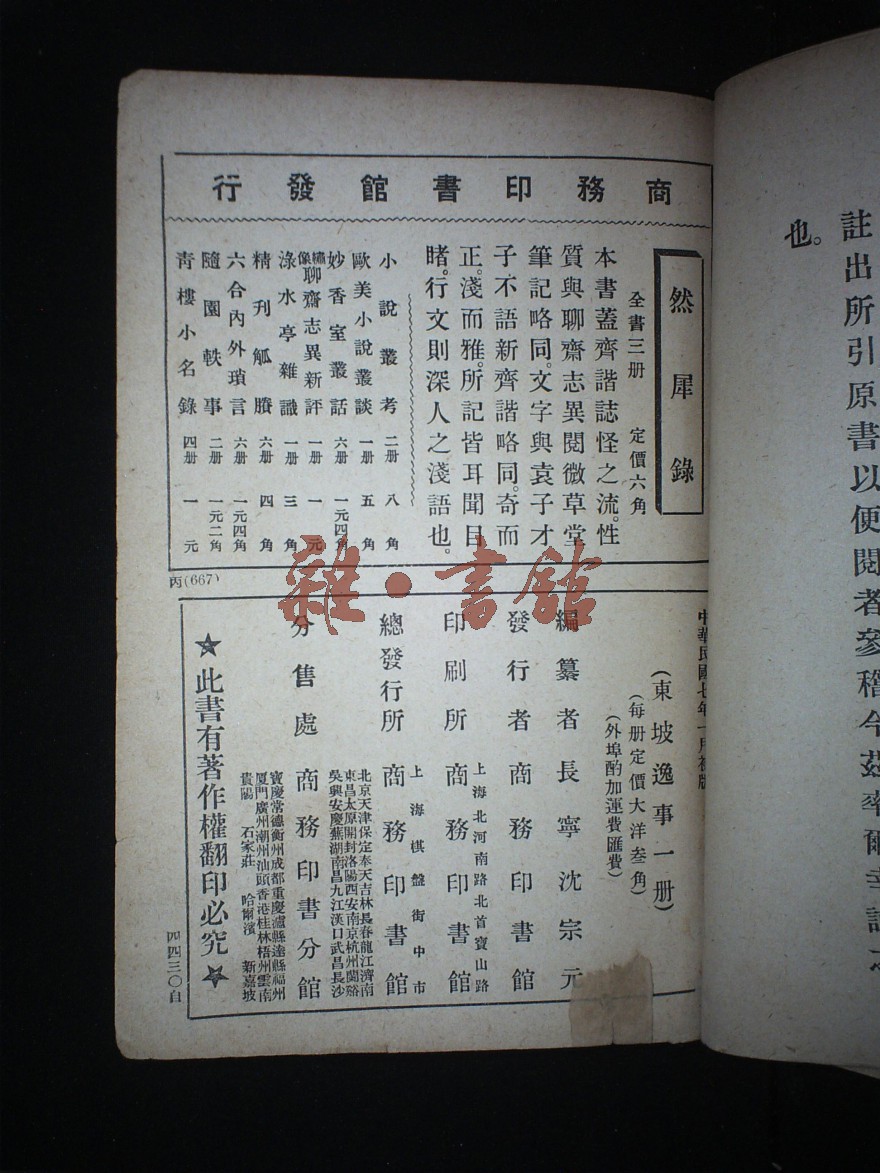 註出所引原書以便閱者參稽今茲率爾
也。
商務印書館發行
然犀錄
全書三册 定價六角
本書蓋齊諧誌怪之流。性
質與聊齋志異閱微草堂
筆記略同。文字與袁子才
子不語新齊諧略同。奇而
正。淺而雅。所記皆耳聞目
睹。行文則深人之淺語也。
小說叢考 二册 八角
歐美小說叢談 一册 五角
妙香室叢話 六册 一元四角
繡像聊齋志異新評 一册 一元
淥水亭雜識 一册 三角
精刊觚賸 六册 四角
六合內外瑣言 六册 一元四角
隨園軼事 二册 一元二角
青樓小名錄 四册 一元
丙(667)
中華民國七年一月初版
(東坡逸事一册)
(每册定價大洋叁角)
(外埠酌加運費匯費)
編纂者 長寧沈宗元
發行者 商務印書館
上海北河南路北首寶山路
印刷所 商務印書館
上海棋盤街中市
總發行所 商務印書館
北京天津保定奉天吉林長春龍江濟南
東昌太原開封洛陽西安南京杭州蘭谿
吳興安慶蕪湖南昌九江漢口武昌長沙
分售處 商務印書分館
寶慶常德衡州成都重慶瀘縣達縣福州
厦門廣州潮州汕頭香港桂林梧州雲南
貴陽 石家莊 哈爾濱 新嘉坡
★此書有著作權翻印必究★
四四三〇自
雜·書館